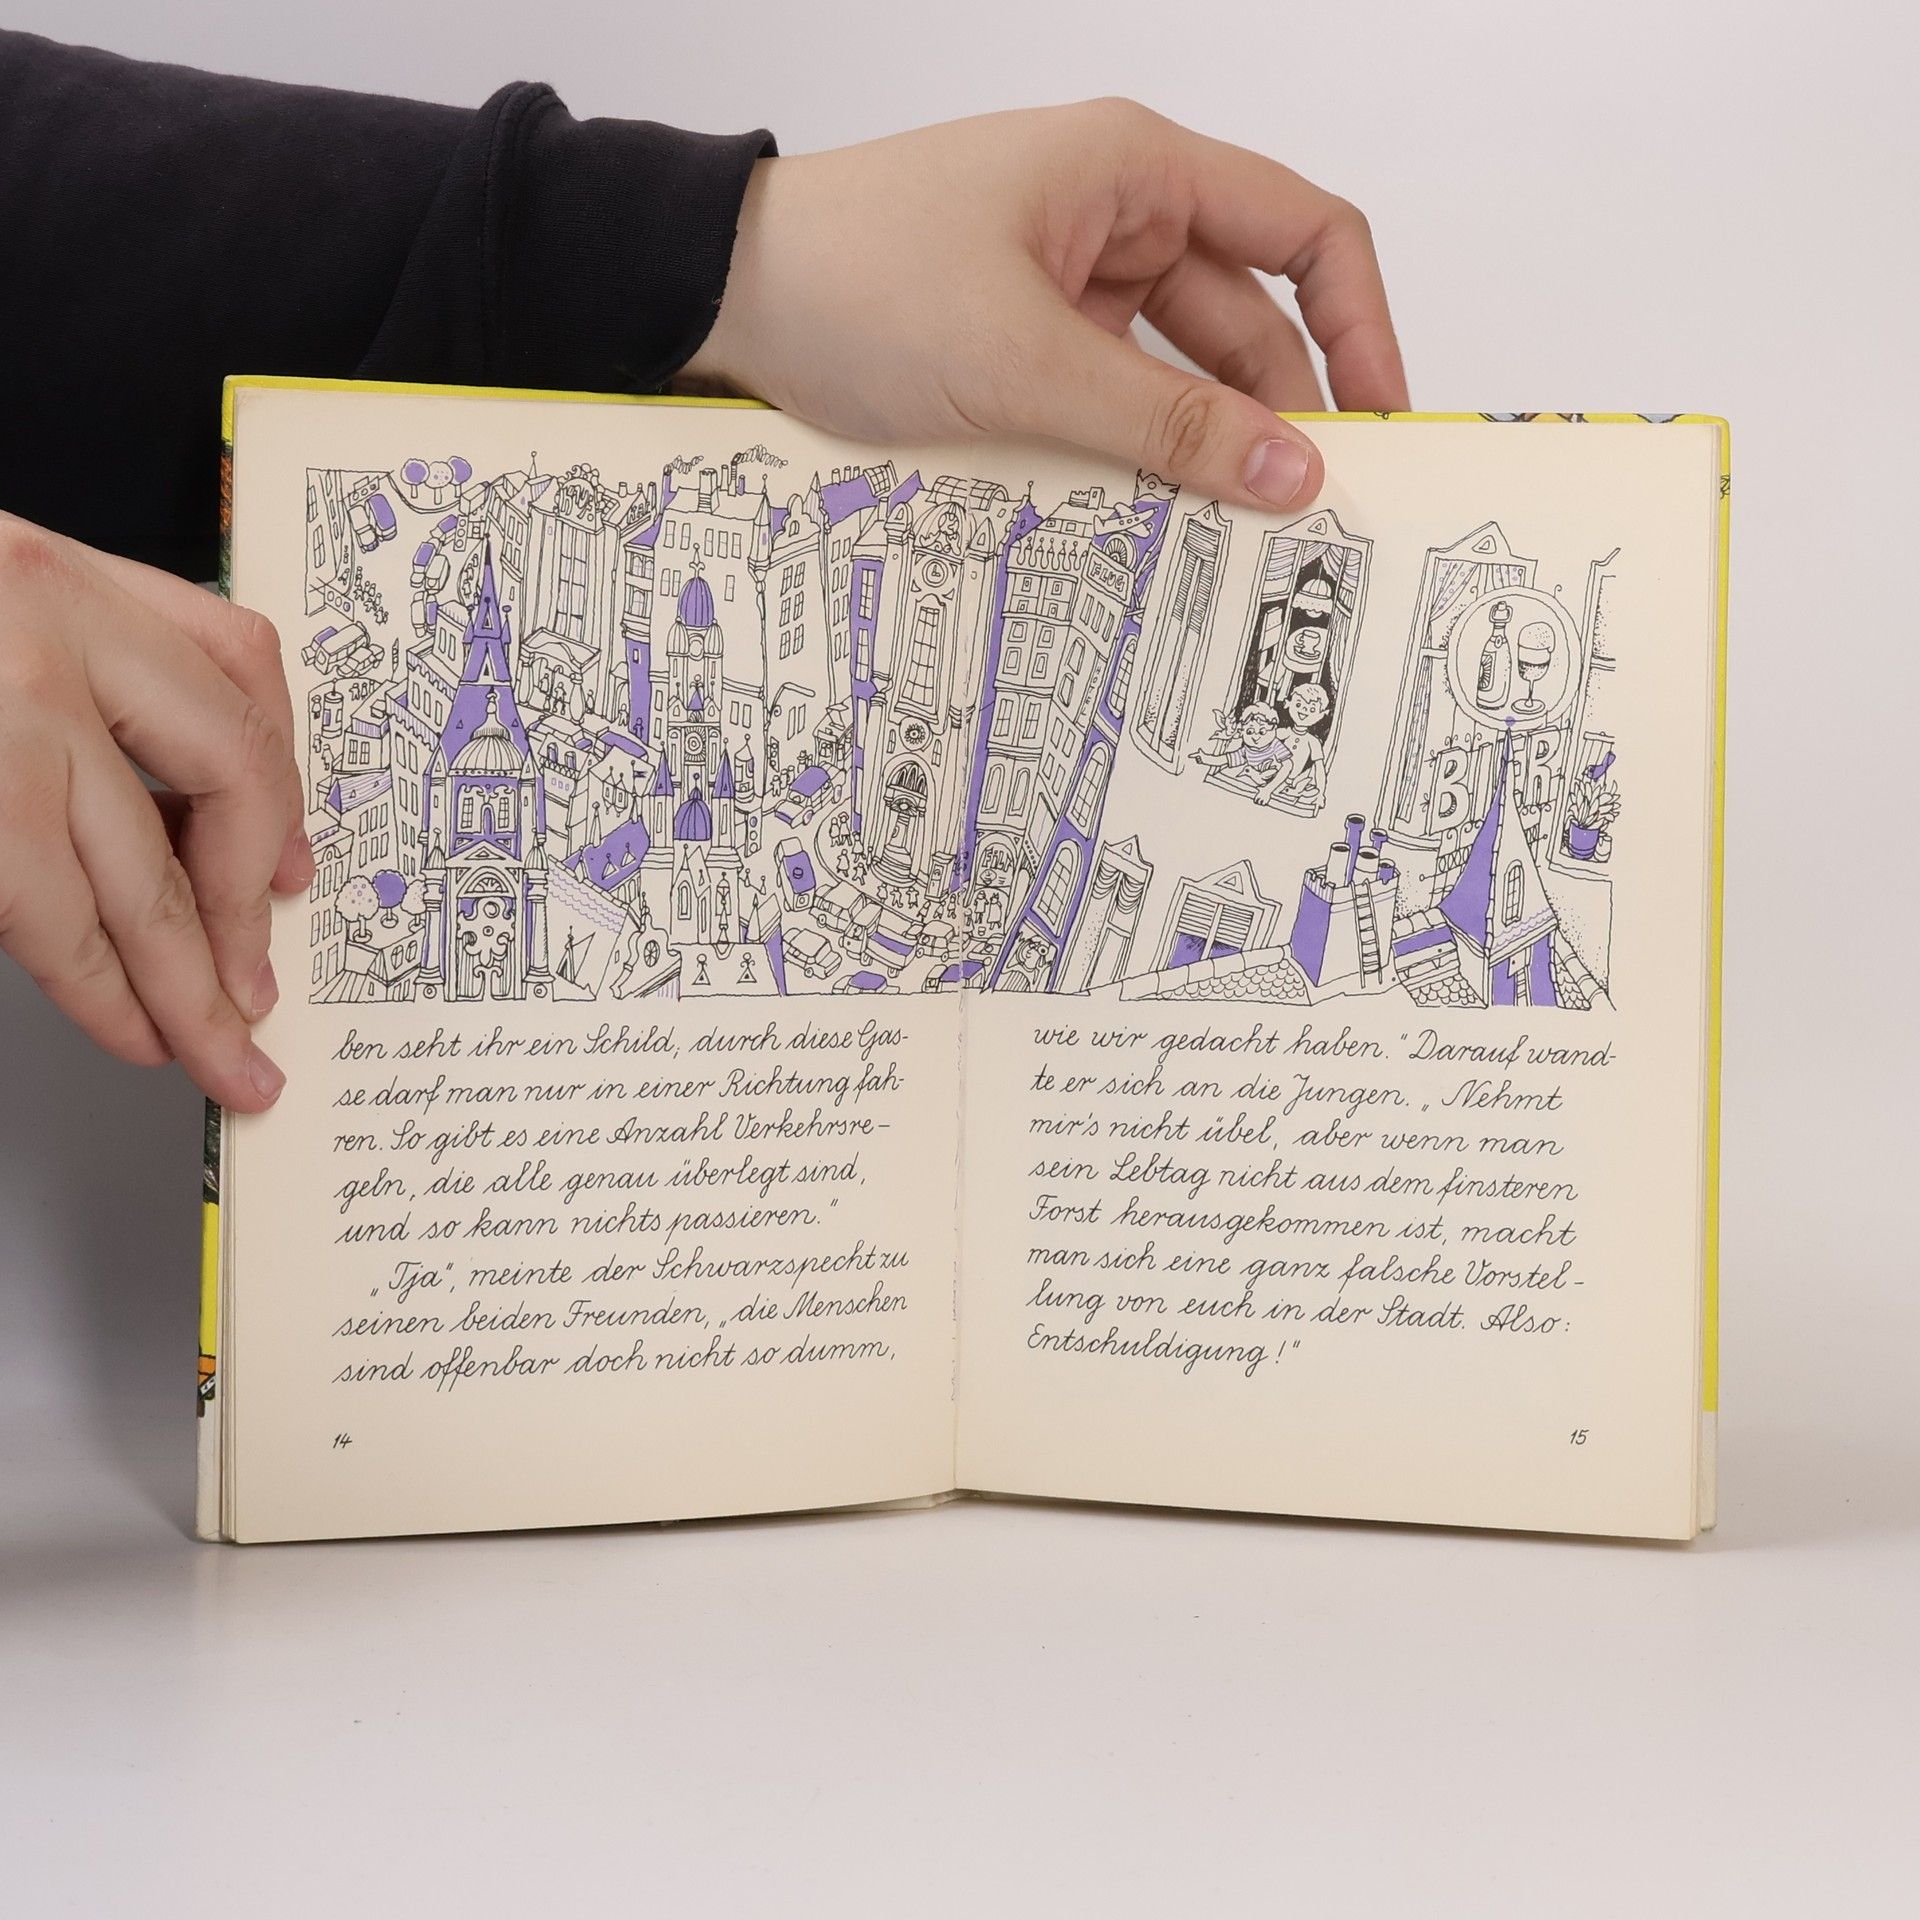 FLUG
BIER
FILM
ben seht ihr ein Schild; durch diese Gas-
se darf man nur in einer Richtung fah-
ren. So gibt es eine Anzahl Verkehrsre-
geln, die alle genau überlegt sind,
und so kann nichts passieren."
„Tja", meinte der Schwarzspecht zu
seinen beiden Freunden, „die Menschen
sind offenbar doch nicht so dumm,
14
wie wir gedacht haben." Darauf wand-
te er sich an die Jungen. „Nehmt
mir's nicht übel, aber wenn man
sein Lebtag nicht aus dem finsteren
Forst herausgekommen ist, macht
man sich eine ganz falsche Vorstel-
lung von euch in der Stadt. Also:
Entschuldigung!"
15